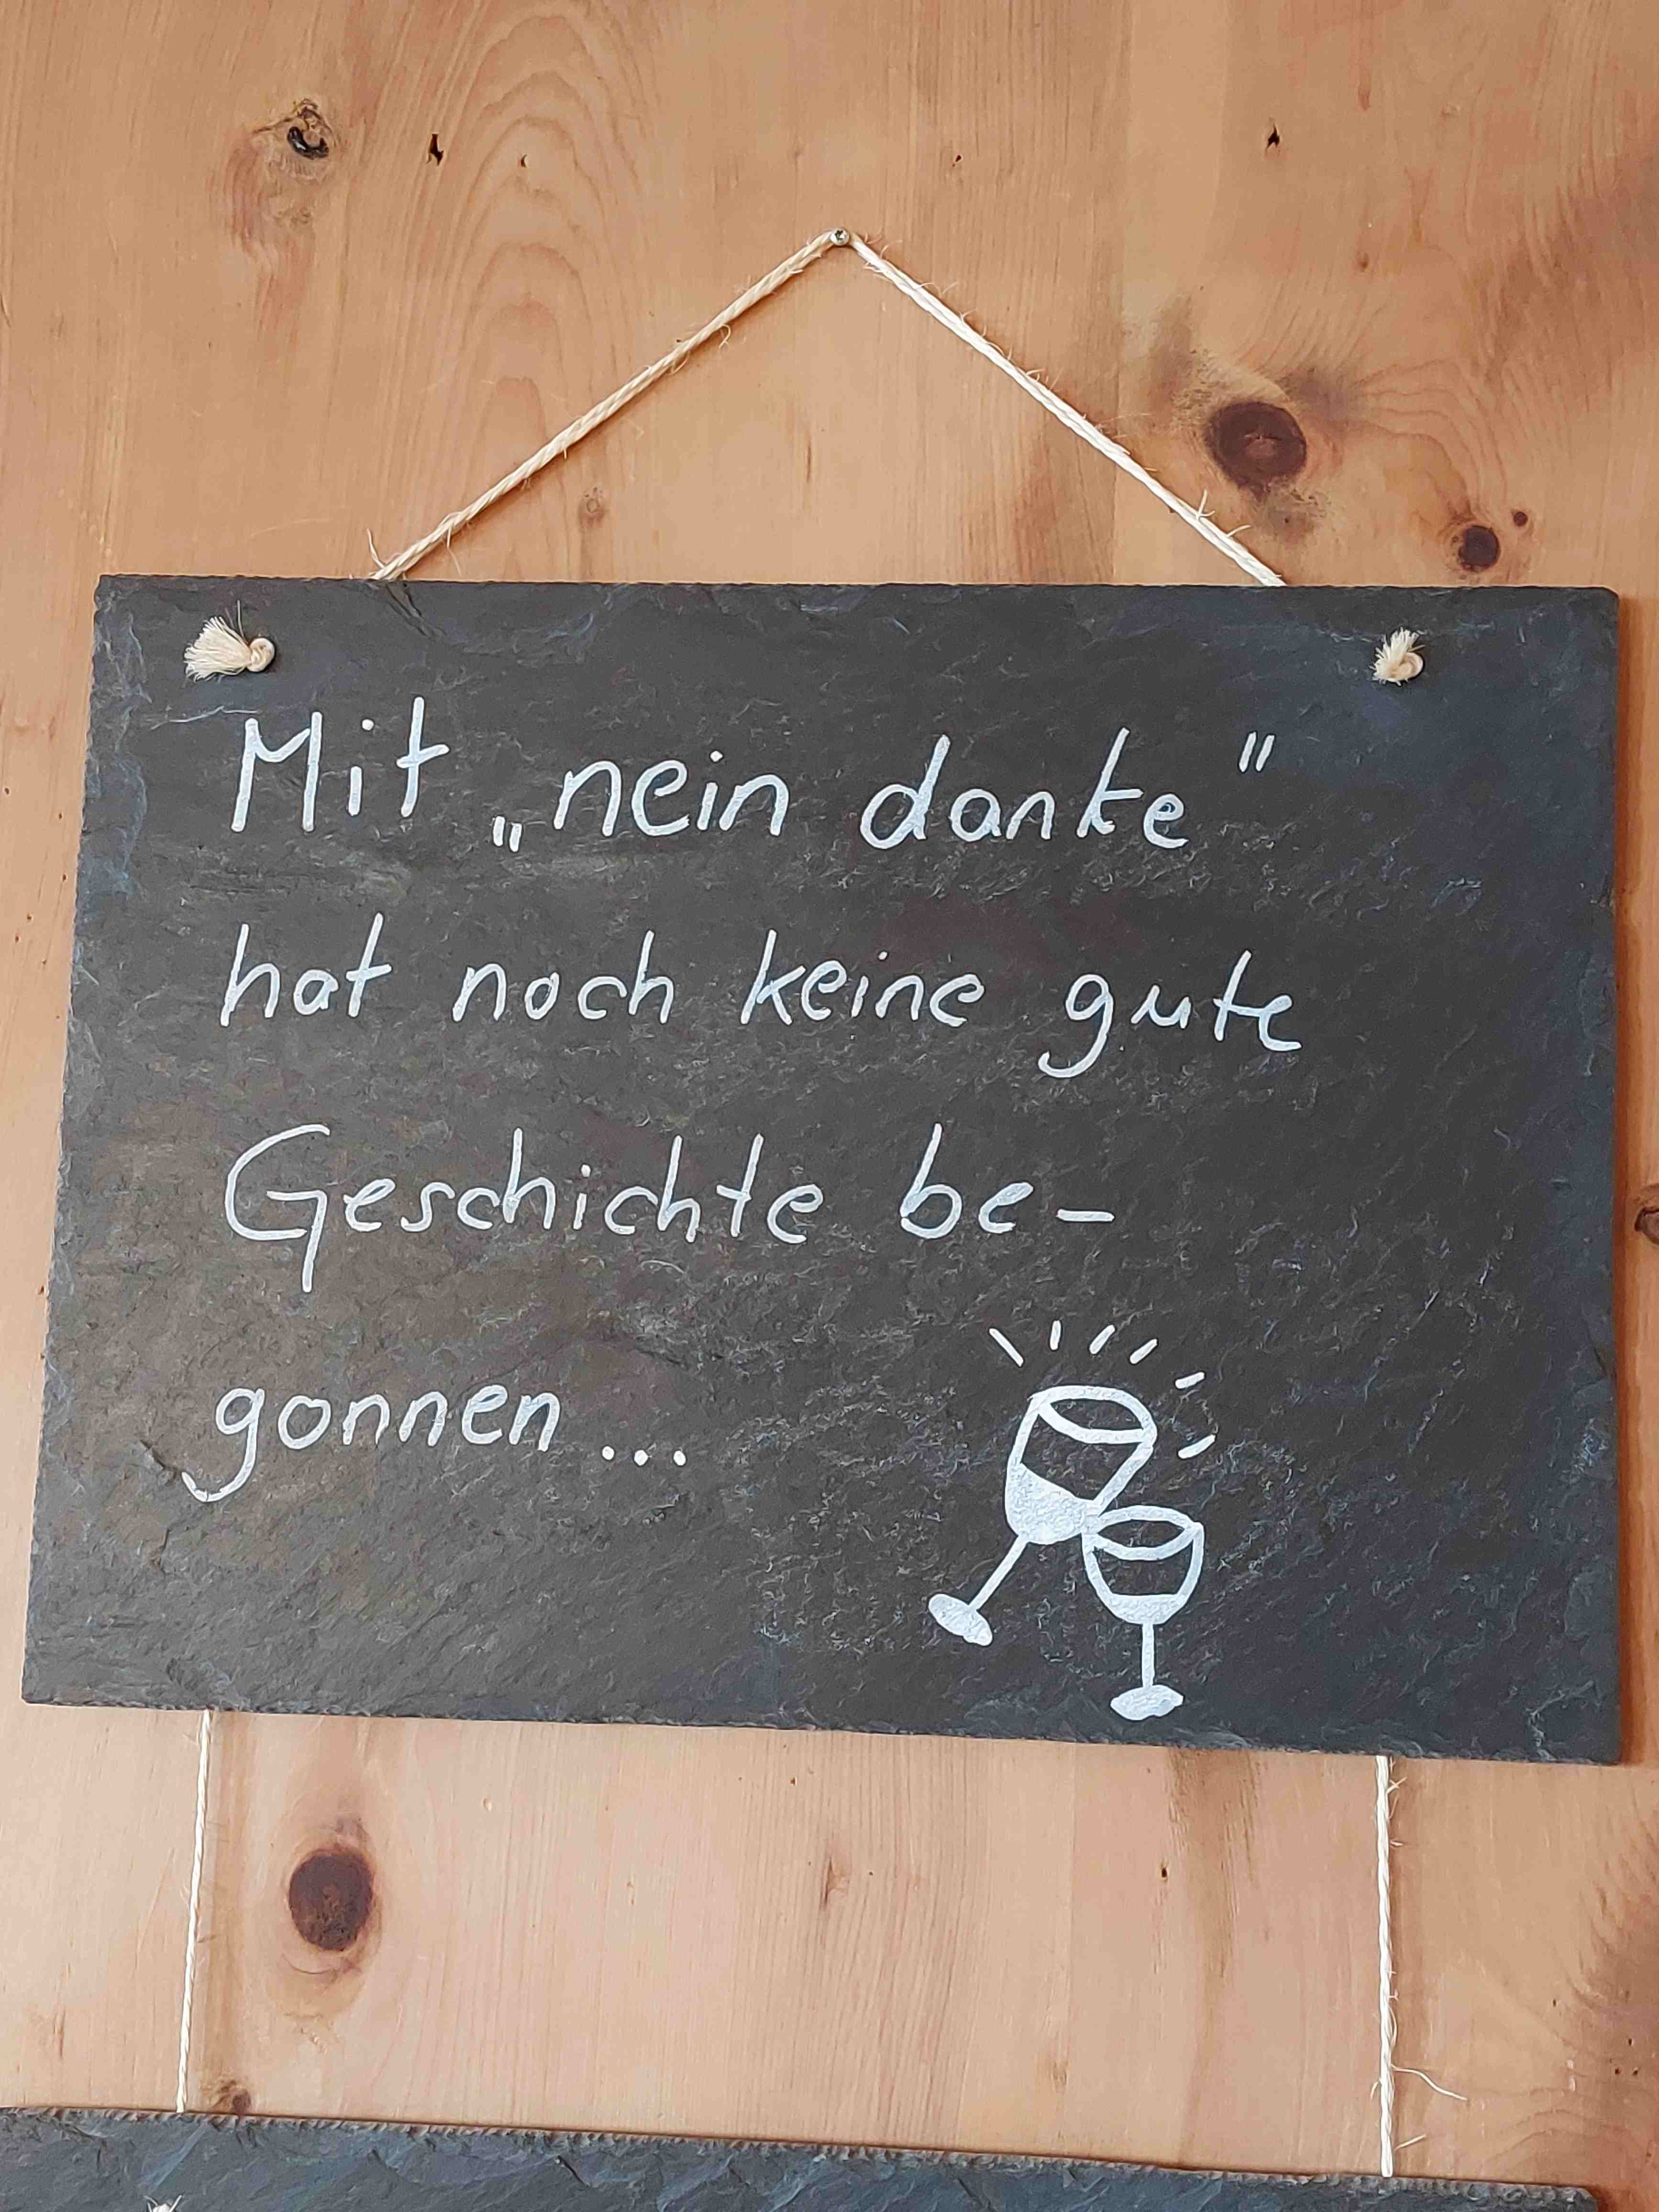 Mit „nein danke"
hat noch keine gute
Geschichte be-
gonnen...